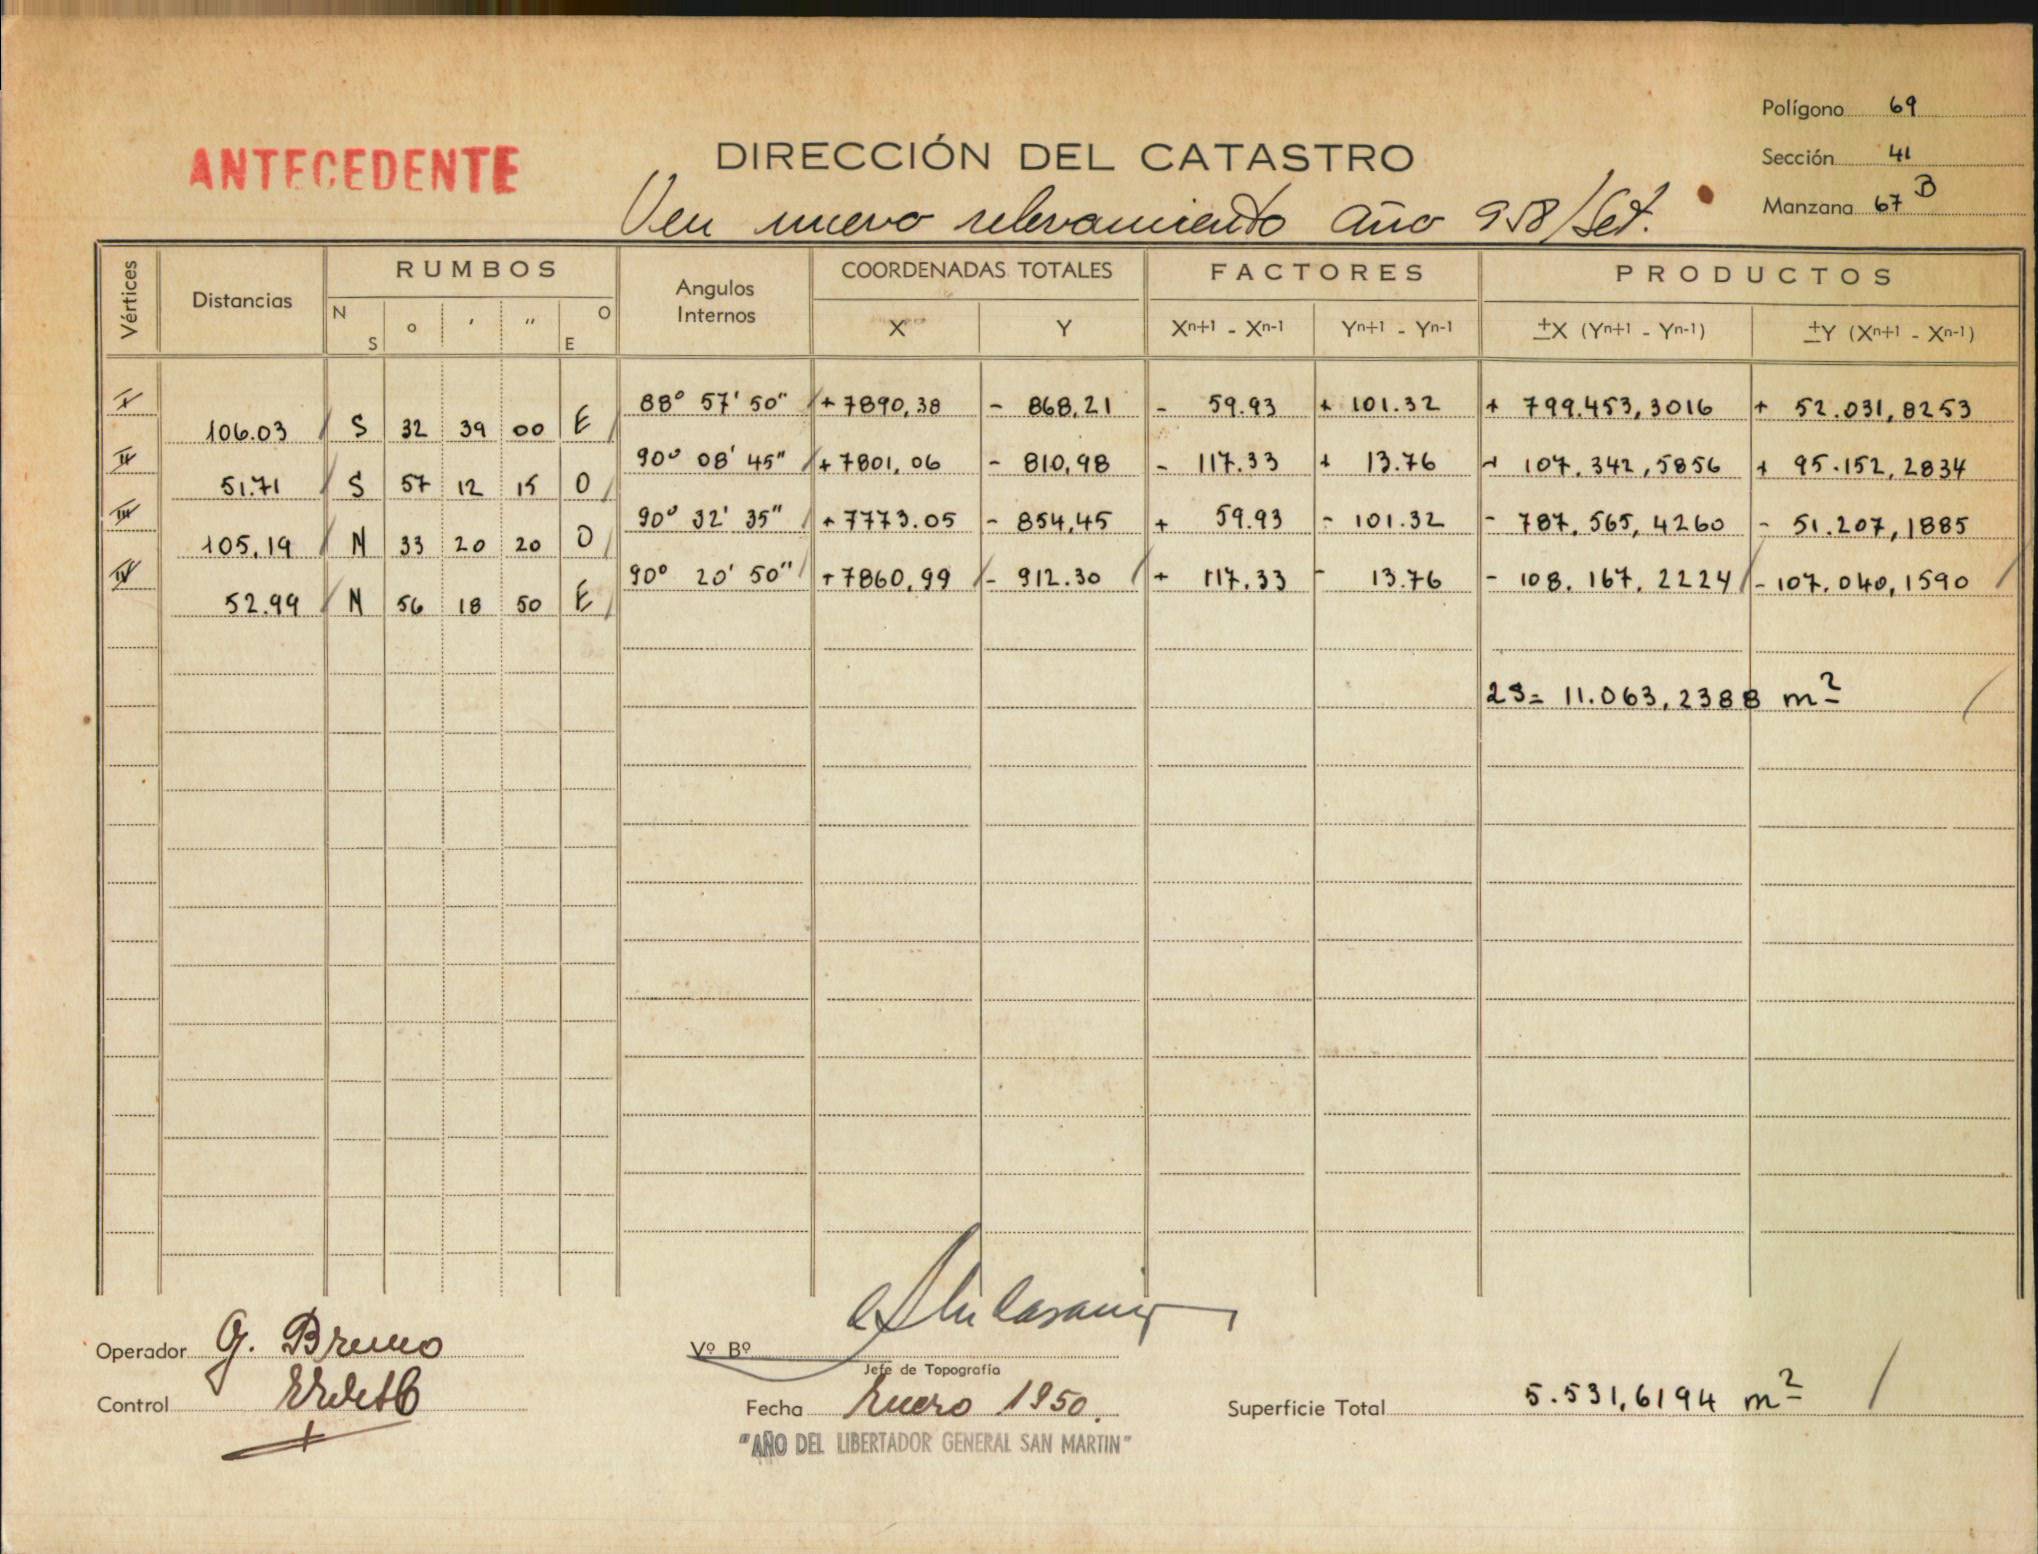 Polígono 69
ANTECEDENTE
DIRECCIÓN DEL CATASTRO
Sección 41
Ver nuevo relevamiento año 958/Set.
Manzana 67 B
Vértices Distancias RUMBOS Angulos Internos COORDENADAS TOTALES FACTORES PRODUCTOS
N S o ' " O E X Y Xn+1 - Xn-1 Yn+1 - Yn-1 ±X (Yn+1 - Yn-1) ±Y (Xn+1 - Xn-1)
I 88° 57' 50" + 7890,38 - 868,21 - 59.93 + 101.32 + 799.453,3016 + 52.031,8253
106.03 S 32 39 00 E
II 90° 08' 45" + 7801,06 - 810,98 - 117.33 + 13.76 + 107.342,5856 + 95.152,2834
51.71 S 57 12 15 O
III 90° 32' 35" + 7773.05 - 854,45 + 59.93 - 101.32 - 787.565,4260 - 51.207,1885
105,19 N 33 20 20 O
IV 90° 20' 50" + 7860,99 - 912.30 + 117.33 - 13.76 - 108.167,2224 - 107.040,1590
52.99 N 56 18 50 E
2S= 11.063,2388 m2
Operador G. Bruno
Vº Bº
Jefe de Topografía
Control
Fecha Enero 1950.
Superficie Total 5.531,6194 m2
"AÑO DEL LIBERTADOR GENERAL SAN MARTIN"